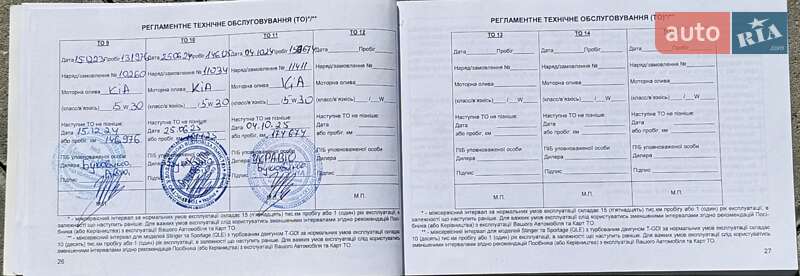 РЕГЛАМЕНТНЕ ТЕХНІЧНЕ ОБСЛУГОВУВАННЯ (ТО)*/**
ТО 9 ТО 10 ТО 11 ТО 12
Дата 15.12.23 Пробіг Дата 25.06.24 Пробіг Дата 04.10.24 Пробіг Дата Пробіг
Наряд/замовлення № 10260 Наряд/замовлення № 11034 Наряд/замовлення № 11411 Наряд/замовлення №
Моторна олива Моторна олива Моторна олива Моторна олива
KIA KIA KIA
(класс/в'язкість) 5W30 (класс/в'язкість) 5W30 (класс/в'язкість) 5W30 (класс/в'язкість) / W
Наступне ТО не пізніше: Наступне ТО не пізніше: Наступне ТО не пізніше: Наступне ТО не пізніше:
Дата 15.12.24 Дата 25.06.25 Дата 04.10.25 Дата
або пробіг, км 146976 або пробіг, км або пробіг, км 174674 або пробіг, км
ПІБ уповноваженої особи ПІБ уповноваженої особи
Дилера Дилера
Підпис Підпис
УКРАВТО
М.П.
* - міжсервісний інтервал за нормальних умов експлуатації складає 15 (п'ятнадцять) тис.км пробігу або 1 (один) рік експлуатації, в
залежності що наступить раніше. Для важких умов експлуатації слід користуватись зменшеними інтервалами згідно рекомендацій Посі-
бника (або Керівництва) з експлуатації Вашого Автомобіля та Карт ТО.
** - міжсервісний інтервал для моделей Stinger та Sportage (QLE) з турбованим двигуном T-GDI за нормальних умов експлуатації складає
10 (десять) тис.км пробігу або 1 (один) рік експлуатації, в залежності що наступить раніше. Для важких умов експлуатації слід користуватись
зменшеними інтервалами згідно рекомендацій Посібника (або Керівництва) з експлуатації Вашого Автомобіля та Карт ТО.
26
РЕГЛАМЕНТНЕ ТЕХНІЧНЕ ОБСЛУГОВУВАННЯ (ТО)*/**
ТО 13 ТО 14
Дата Пробіг Дата Пробіг Дата Пробіг
Наряд/замовлення № Наряд/замовлення № Наряд/замовлення №
Моторна олива Моторна олива Моторна олива
(класс/в'язкість) / W (класс/в'язкість) / W (класс/в'язкість) / W
Наступне ТО не пізніше: Наступне ТО не пізніше: Наступне ТО не пізніше:
Дата Дата Дата
або пробіг, км або пробіг, км або пробіг, км
ПІБ уповноваженої особи ПІБ уповноваженої особи ПІБ уповноваженої особи
Дилера Дилера Дилера
Підпис Підпис Підпис
М.П. М.П. М.П.
* - міжсервісний інтервал за нормальних умов експлуатації складає 15 (п'ятнадцять) тис.км пробігу або 1 (один) рік експлуатації, в
залежності що наступить раніше. Для важких умов експлуатації слід користуватись зменшеними інтервалами згідно рекомендацій Посі-
бника (або Керівництва) з експлуатації Вашого Автомобіля та Карт ТО.
** - міжсервісний інтервал для моделей Stinger та Sportage (QLE) з турбованим двигуном T-GDI за нормальних умов експлуатації складає
10 (десять) тис.км пробігу або 1 (один) рік експлуатації, в залежності що наступить раніше. Для важких умов експлуатації слід користуватись
зменшеними інтервалами згідно рекомендацій Посібника (або Керівництва) з експлуатації Вашого Автомобіля та Карт ТО.
27
auto RIA